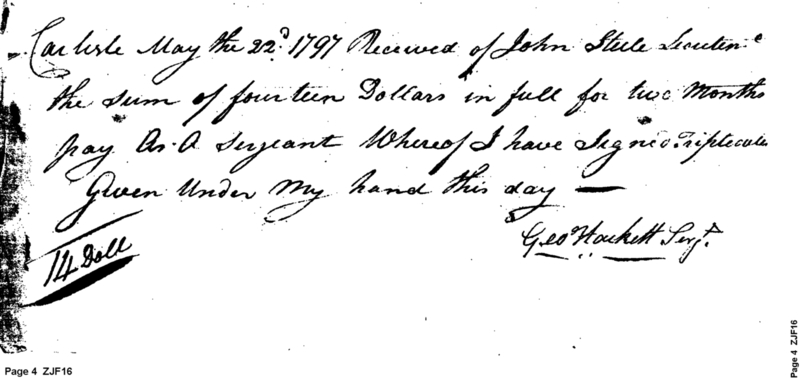 Carlisle May the 22d. 1797 Received of John Steele Lieutenc
the sum of fourteen Dollars in full for two Months
pay As A Sergeant Whereof I have Signed Triplecates
Given Under My hand this day —
Geo Hackett Sergt.
14 Doll
Page 4 ZJF16
Page 4 ZJF16